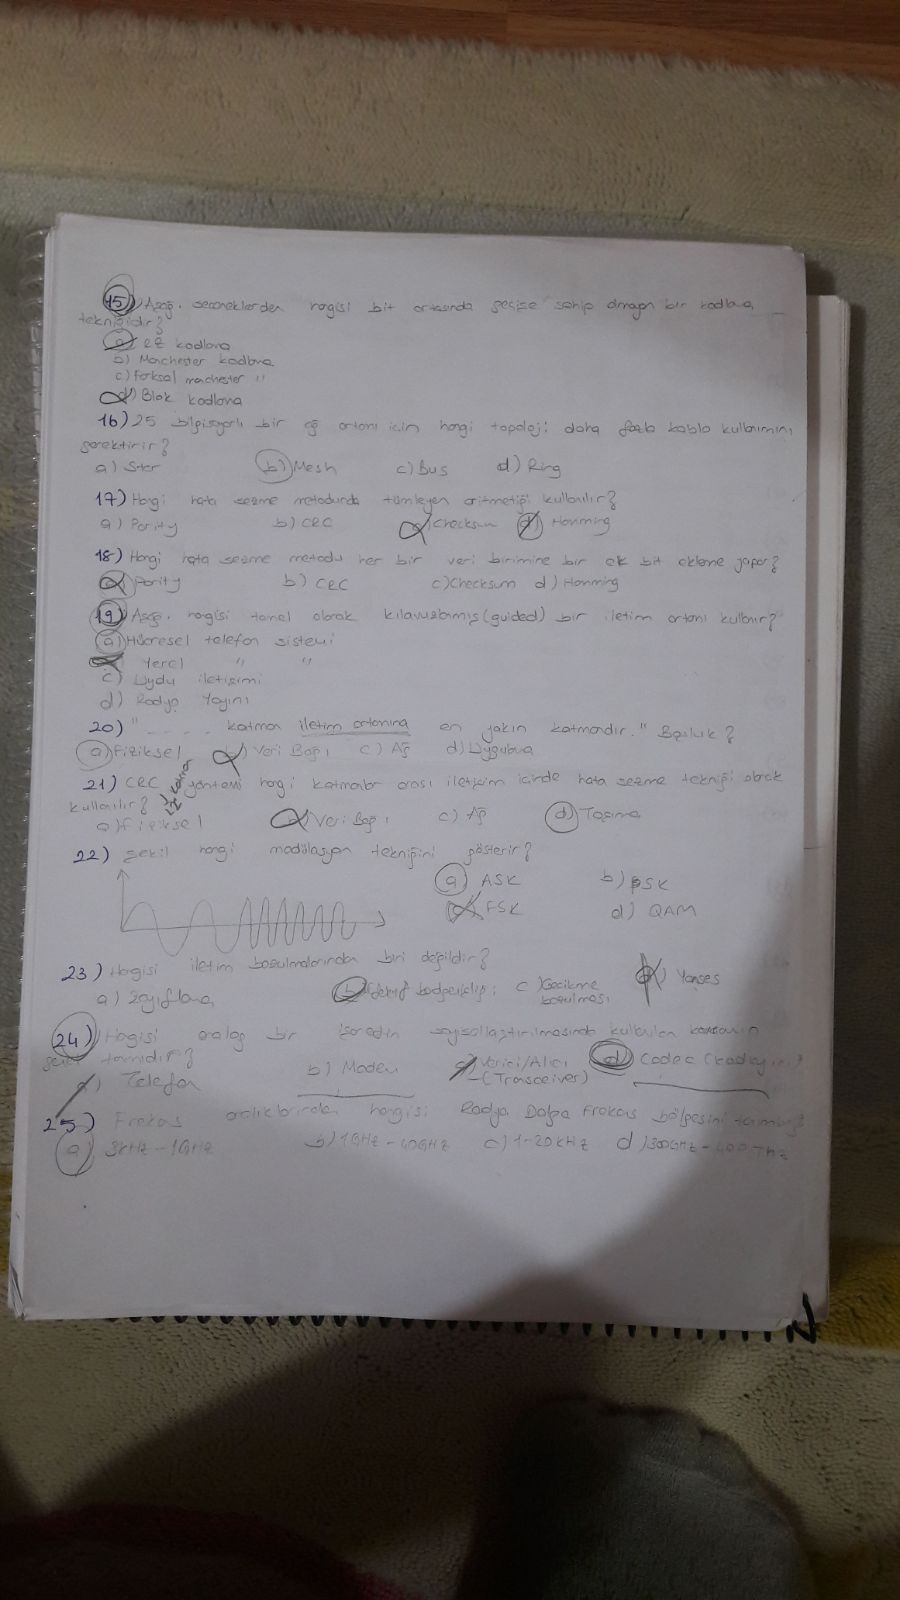 15) Aşağ. seçeneklerden hangisi bit ortasında geçişe sahip olmayan bir kodlama
tekniğidir?
a) RZ kodlama
b) Manchester kodlama
c) Farksal manchester "
d) Blok kodlama
16) 25 bilgisayarlı bir ağ ortamı için hangi topoloji daha fazla kablo kullanımını
gerektirir?
a) Star b) Mesh c) Bus d) Ring
17) Hangi hata sezme metodunda tümleyen aritmetiği kullanılır?
a) Parity b) CRC c) Checksum d) Hamming
18) Hangi hata sezme metodu her bir veri birimine bir ek bit ekleme yapar?
a) Parity b) CRC c) Checksum d) Hamming
19) Aşağ. hangisi temel olarak kılavuzlanmış (guided) bir iletim ortamı kullanır?
a) Hücresel telefon sistemi
Yerel " "
c) Uydu iletişimi
d) Radyo Yayını
20) " - - - - katman iletim ortamına en yakın katmandır." Boşluk?
a) Fiziksel b) Veri Bağı c) Ağ d) Uygulama
21) CRC yöntemi hangi katmanlar arası iletişim içinde hata sezme tekniği olarak
kullanılır?
a) Fiziksel b) Veri Bağı c) Ağ d) Taşıma
22) Şekil hangi modülasyon tekniğini gösterir?
a) ASK b) PSK
c) FSK d) QAM
23) Hangisi iletim bozulmalarından biri değildir?
a) Zayıflama b) c) Gecikme bozulması d) Yanses
24) Hangisi analog bir işaretin sayısallaştırılmasında kullanılan
genel tanımıdır?
a) Telefon b) Modem c) Verici/Alıcı (Transceiver) d) Codec
25) Frekans aralıklarından hangisi Radyo Dalga Frekans bölgesini tanımlar?
a) 3kHz - 1GHz b) 1GHz - 40GHz c) 1-20kHz d) 300GHz - 400THz